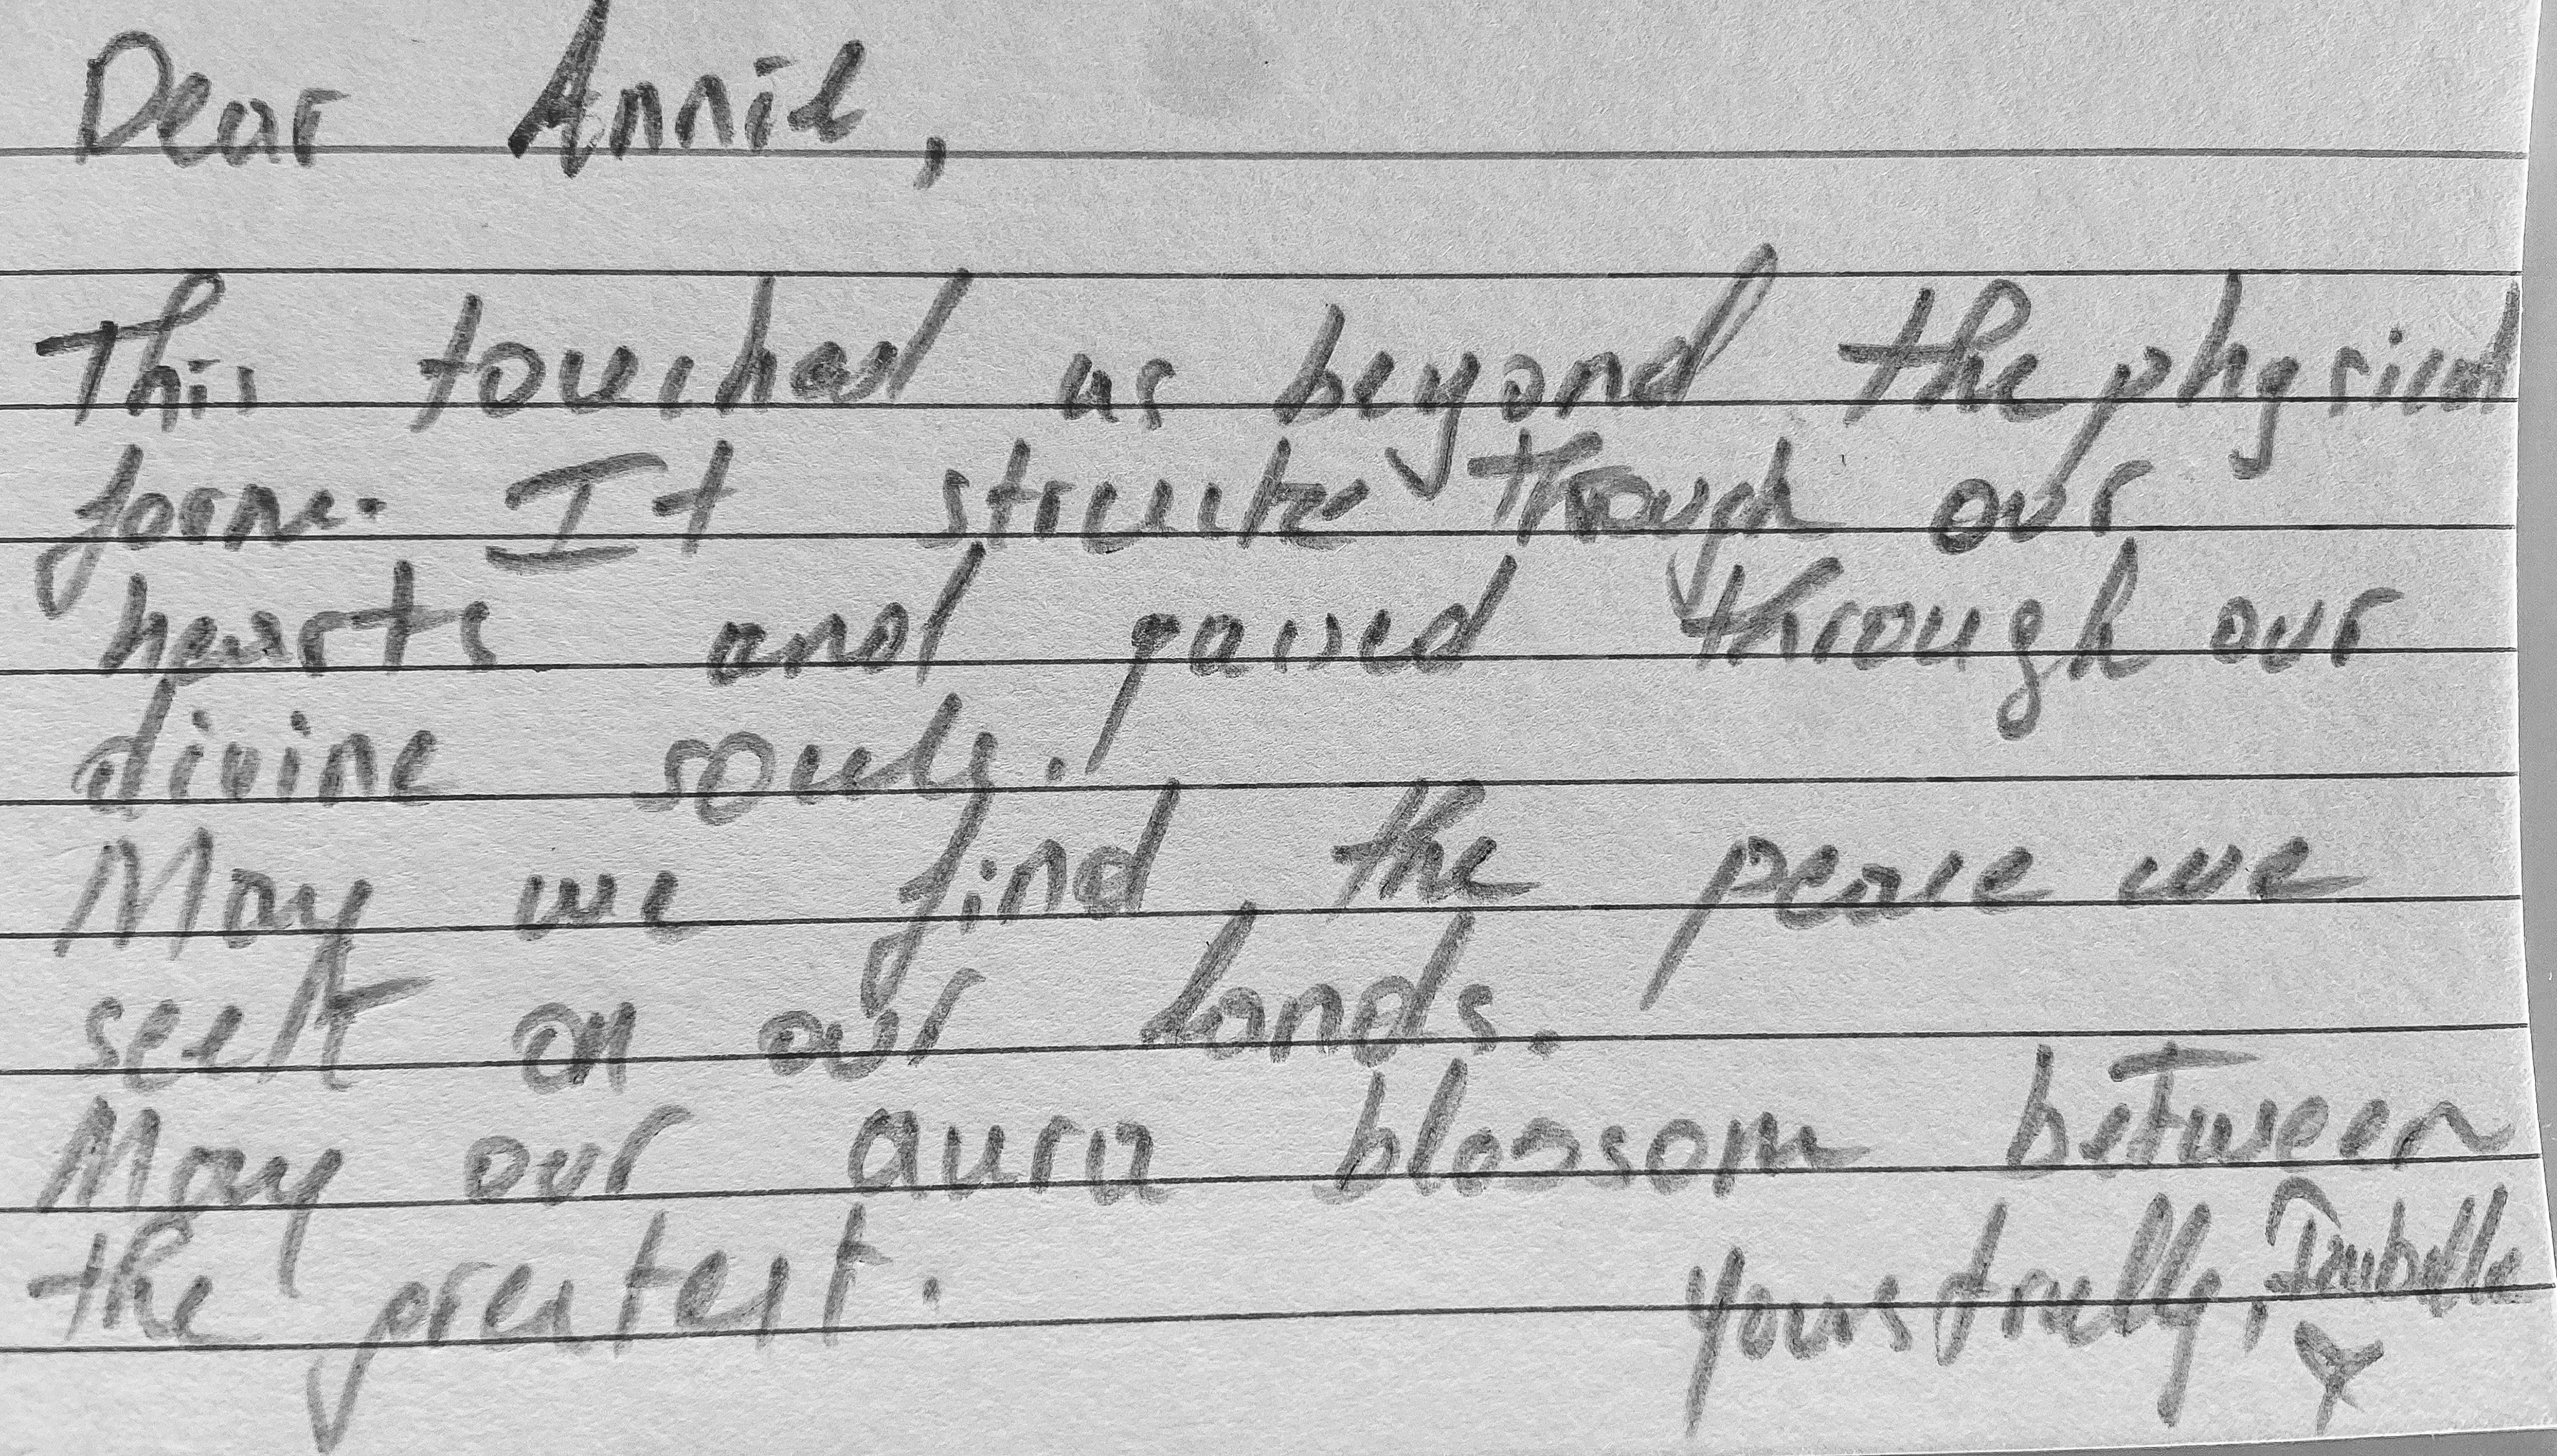 Dear Annie,
This touched us beyond the physical
form. It struck through our
hearts and passed through our
divine souls.
May we find the peace we
seek on our lands.
May our aura blossom between
the greatest.
Yours trully,